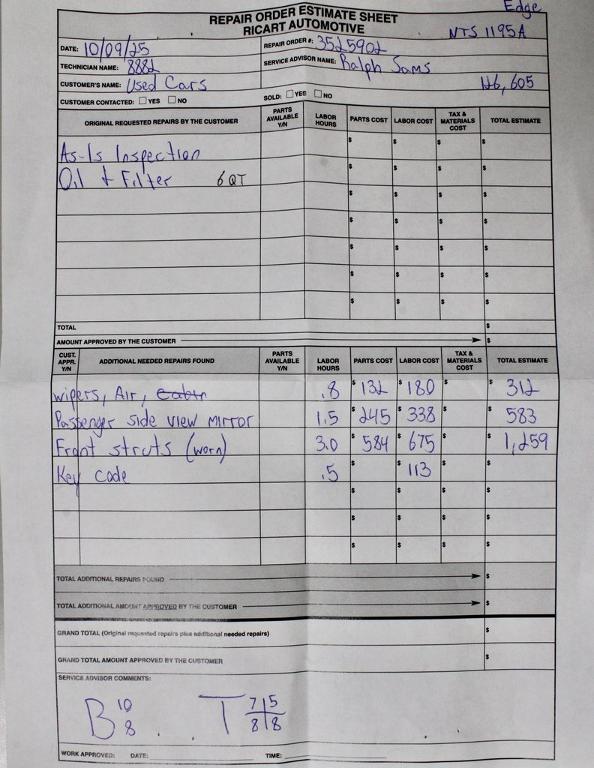 Edge
REPAIR ORDER ESTIMATE SHEET
RICART AUTOMOTIVE
NTS 1195A
DATE: 10/09/25 REPAIR ORDER #: 3525902
TECHNICIAN NAME: 8882 SERVICE ADVISOR NAME: Ralph Sams
CUSTOMER'S NAME: Used Cars 126,605
CUSTOMER CONTACTED: YES NO SOLD: YES NO
ORIGINAL REQUESTED REPAIRS BY THE CUSTOMER PARTS AVAILABLE Y/N LABOR HOURS PARTS COST LABOR COST TAX & MATERIALS COST TOTAL ESTIMATE
As-Is Inspection $ $ $
Oil + Filter 6 QT $ $ $
$ $ $
$ $ $
$ $ $
$ $ $
$ $ $
TOTAL $
AMOUNT APPROVED BY THE CUSTOMER $
CUST. APPR. Y/N ADDITIONAL NEEDED REPAIRS FOUND PARTS AVAILABLE Y/N LABOR HOURS PARTS COST LABOR COST TAX & MATERIALS COST TOTAL ESTIMATE
wipers, Air, Cabin .8 $132 $180 $312
Passenger side view mirror 1.5 $245 $338 $583
Front struts (worn) 3.0 $584 $675 $1,259
Key code .5 $ $113 $
$ $ $
$ $ $
$ $ $
TOTAL ADDITIONAL REPAIRS FOUND $
TOTAL ADDITIONAL AMOUNT APPROVED BY THE CUSTOMER $
GRAND TOTAL (Original requested repairs plus additional needed repairs) $
GRAND TOTAL AMOUNT APPROVED BY THE CUSTOMER $
SERVICE ADVISOR COMMENTS:
B 10 8 T 7 5 8 8
WORK APPROVED: DATE: TIME: